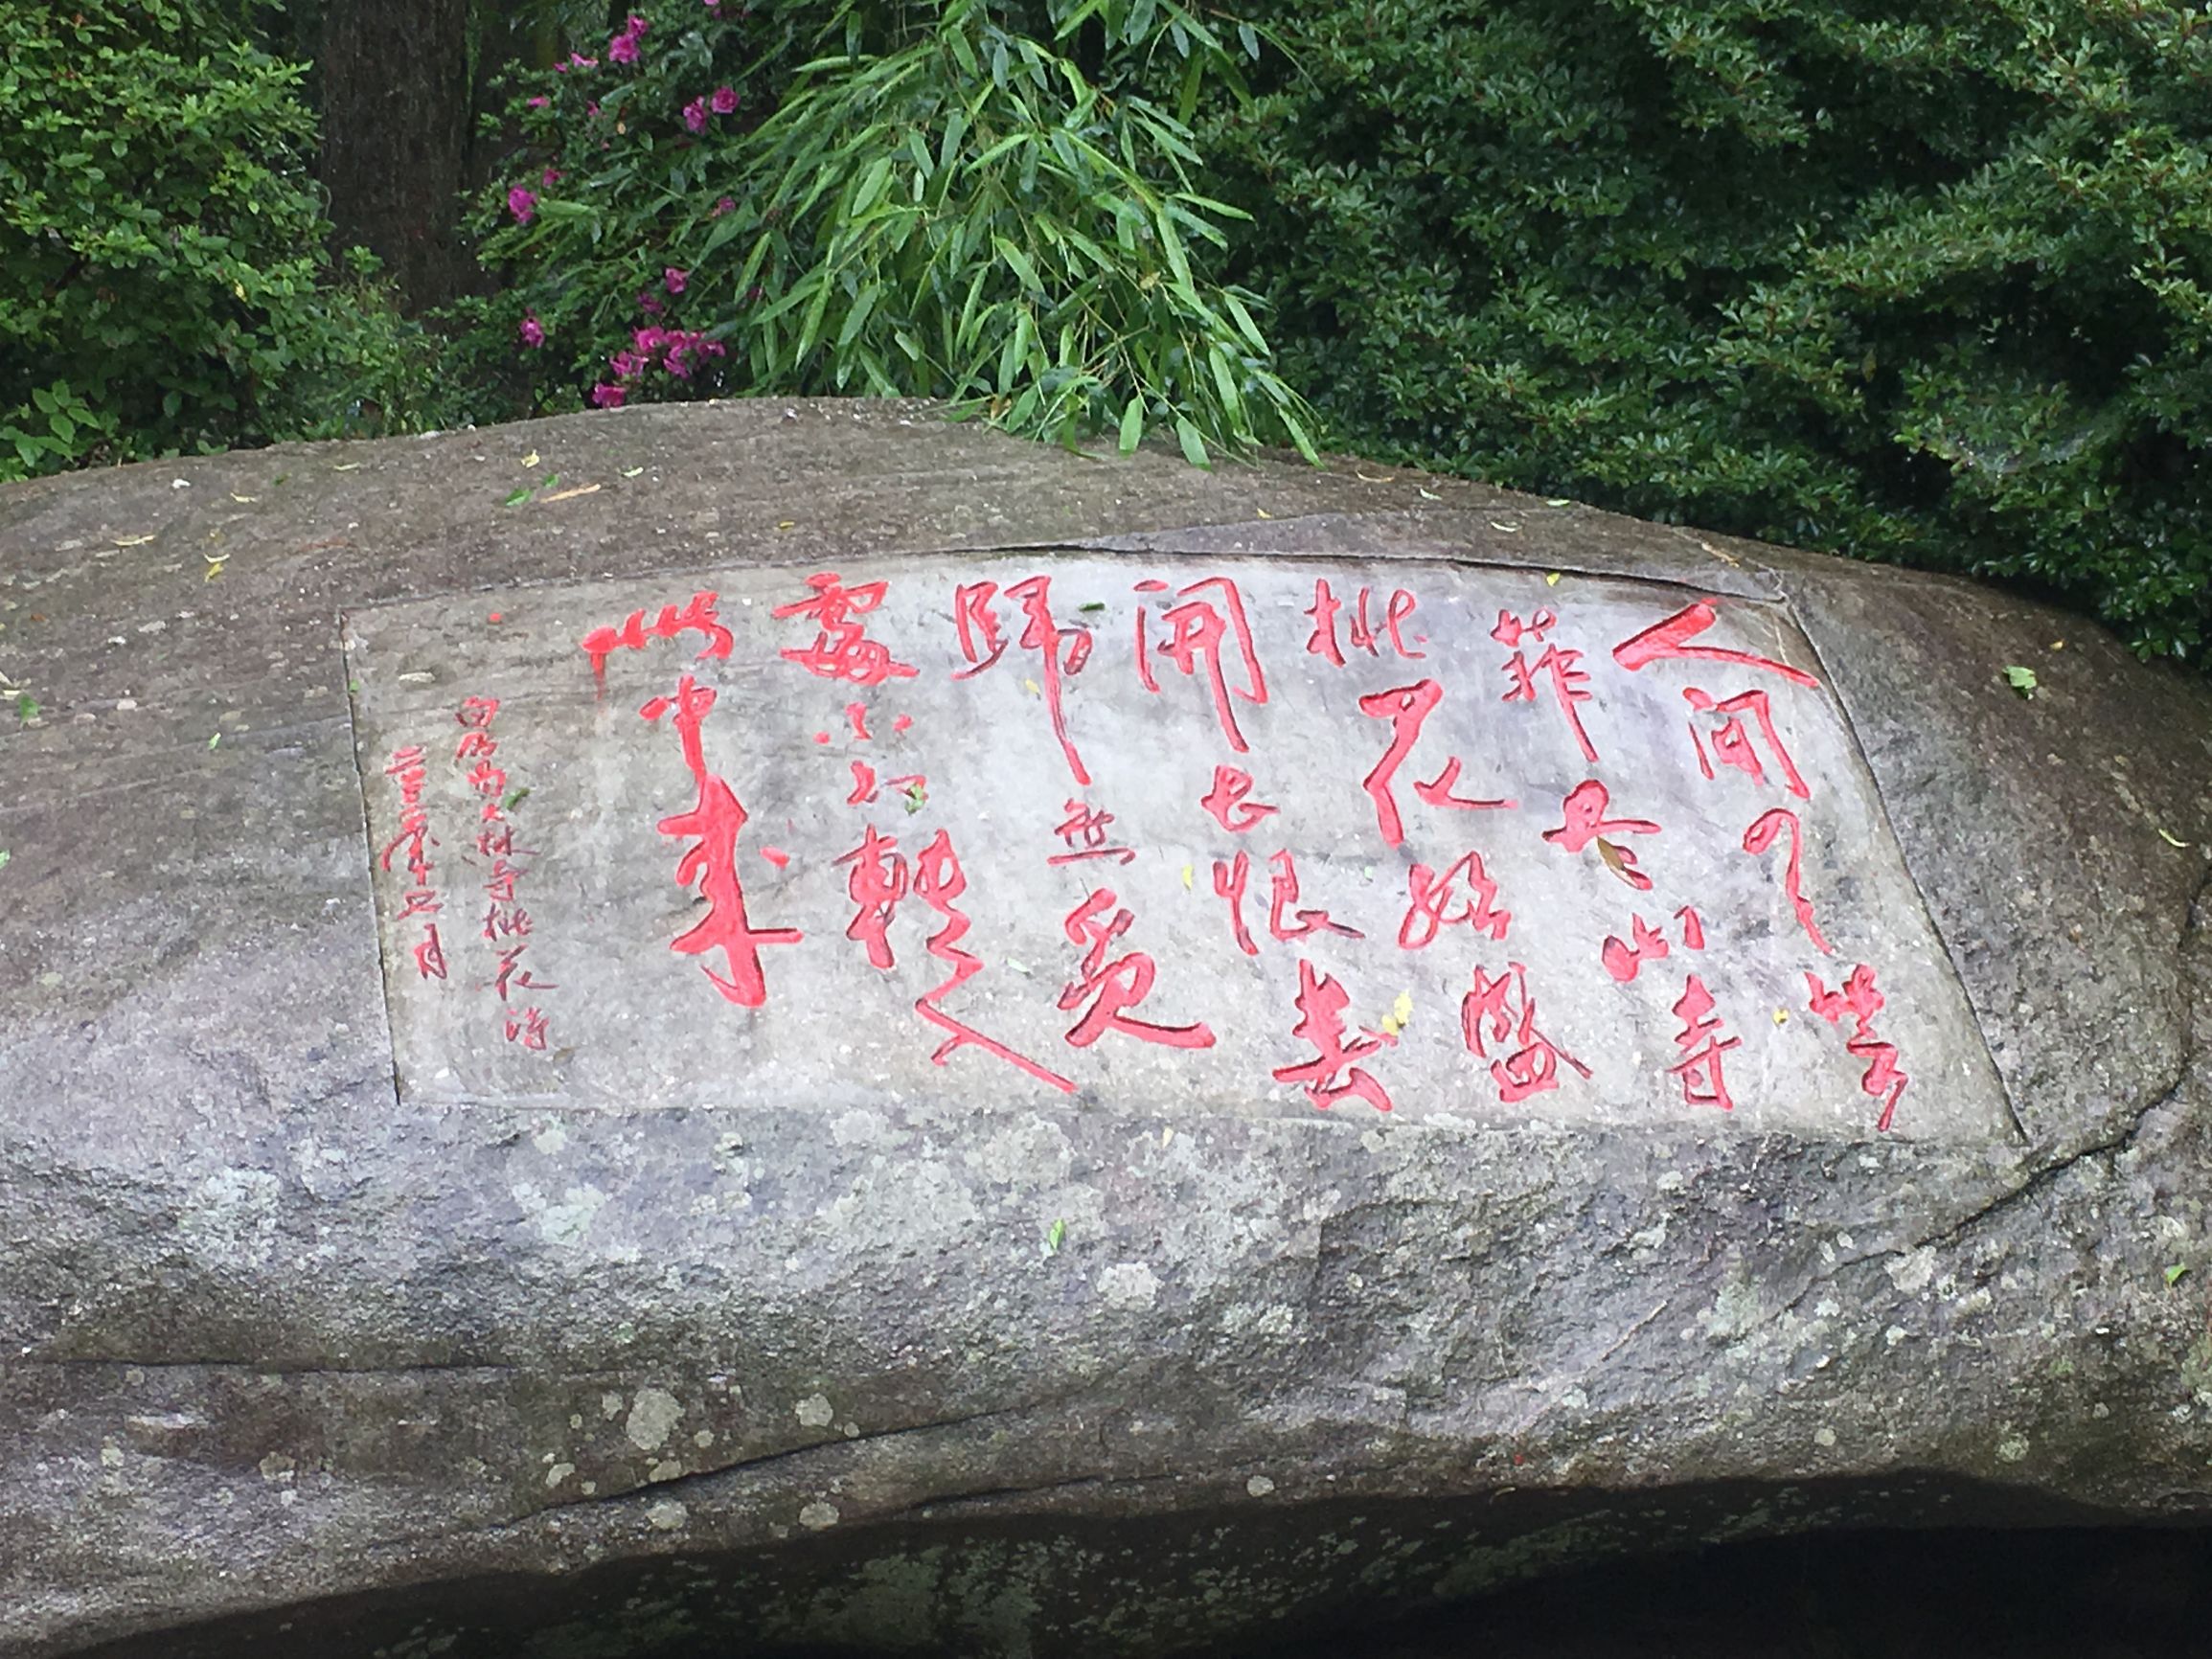 人間四月芳
菲尽山寺
桃花始盛
開長恨春
歸無覓
處不知轉入
此中來
白居易大林寺桃花詩
年 月